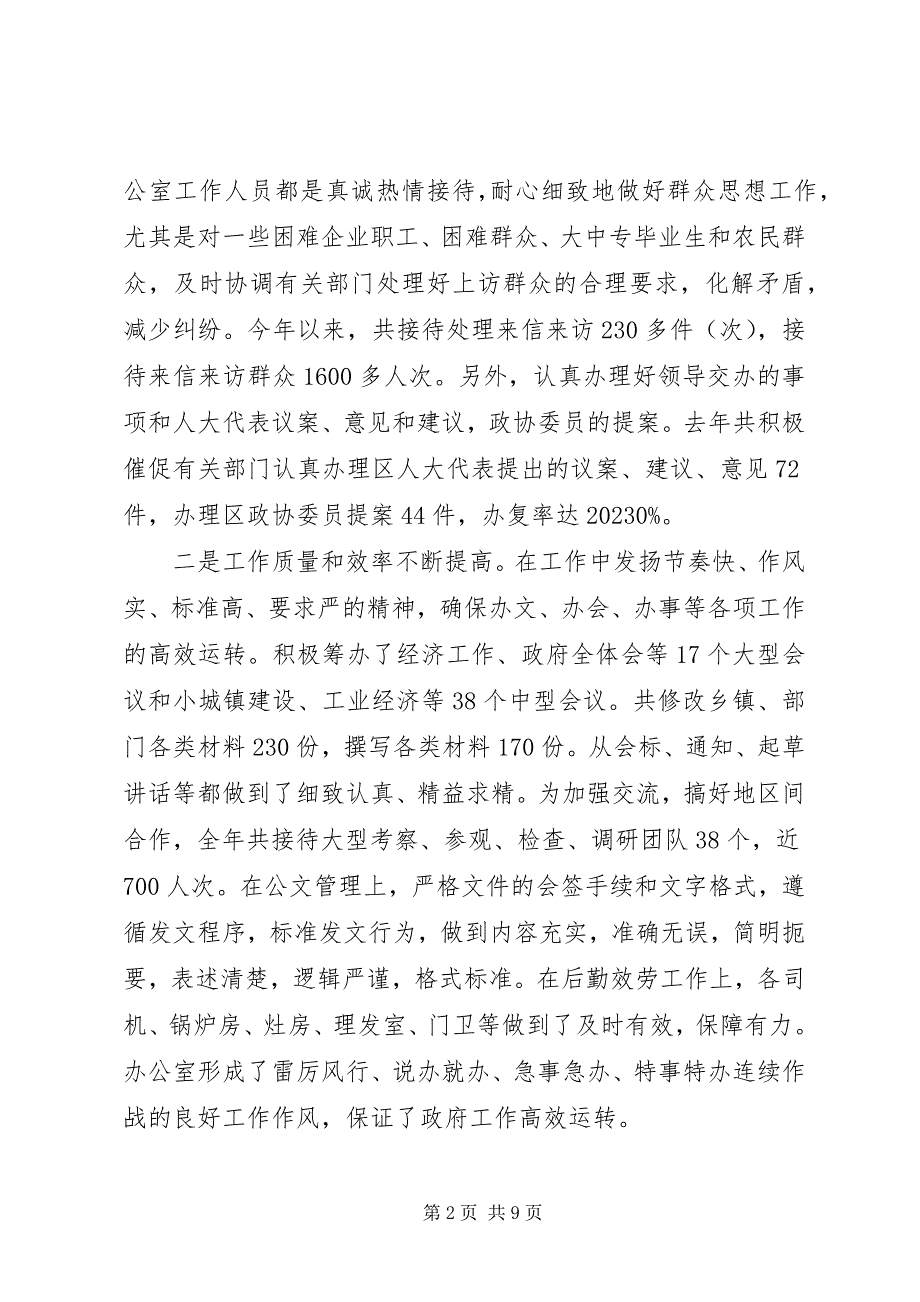 公室工作人员都是真诚热情接待,耐心细致地做好群众思想工作,
尤其是对一些困难企业职工、困难群众、大中专毕业生和农民群
众，及时协调有关部门处理好上访群众的合理要求，化解矛盾，
减少纠纷。今年以来，共接待处理来信来访 230 多件（次），接
待来信来访群众 1600 多人次。另外，认真办理好领导交办的事
项和人大代表议案、意见和建议，政协委员的提案。去年共积极
催促有关部门认真办理区人大代表提出的议案、建议、意见 72
件，办理区政协委员提案 44 件，办复率达 20230%。
二是工作质量和效率不断提高。在工作中发扬节奏快、作风
实、标准高、要求严的精神，确保办文、办会、办事等各项工作
的高效运转。积极筹办了经济工作、政府全体会等 17 个大型会
议和小城镇建设、工业经济等 38 个中型会议。共修改乡镇、部
门各类材料 230 份，撰写各类材料 170 份。从会标、通知、起草
讲话等都做到了细致认真、精益求精。为加强交流，搞好地区间
合作，全年共接待大型考察、参观、检查、调研团队 38 个，近
700 人次。在公文管理上，严格文件的会签手续和文字格式，遵
循发文程序，标准发文行为，做到内容充实，准确无误，简明扼
要，表述清楚，逻辑严谨，格式标准。在后勤效劳工作上，各司
机、锅炉房、灶房、理发室、门卫等做到了及时有效，保障有力。
办公室形成了雷厉风行、说办就办、急事急办、特事特办连续作
战的良好工作作风，保证了政府工作高效运转。
第 2 页 共 9 页